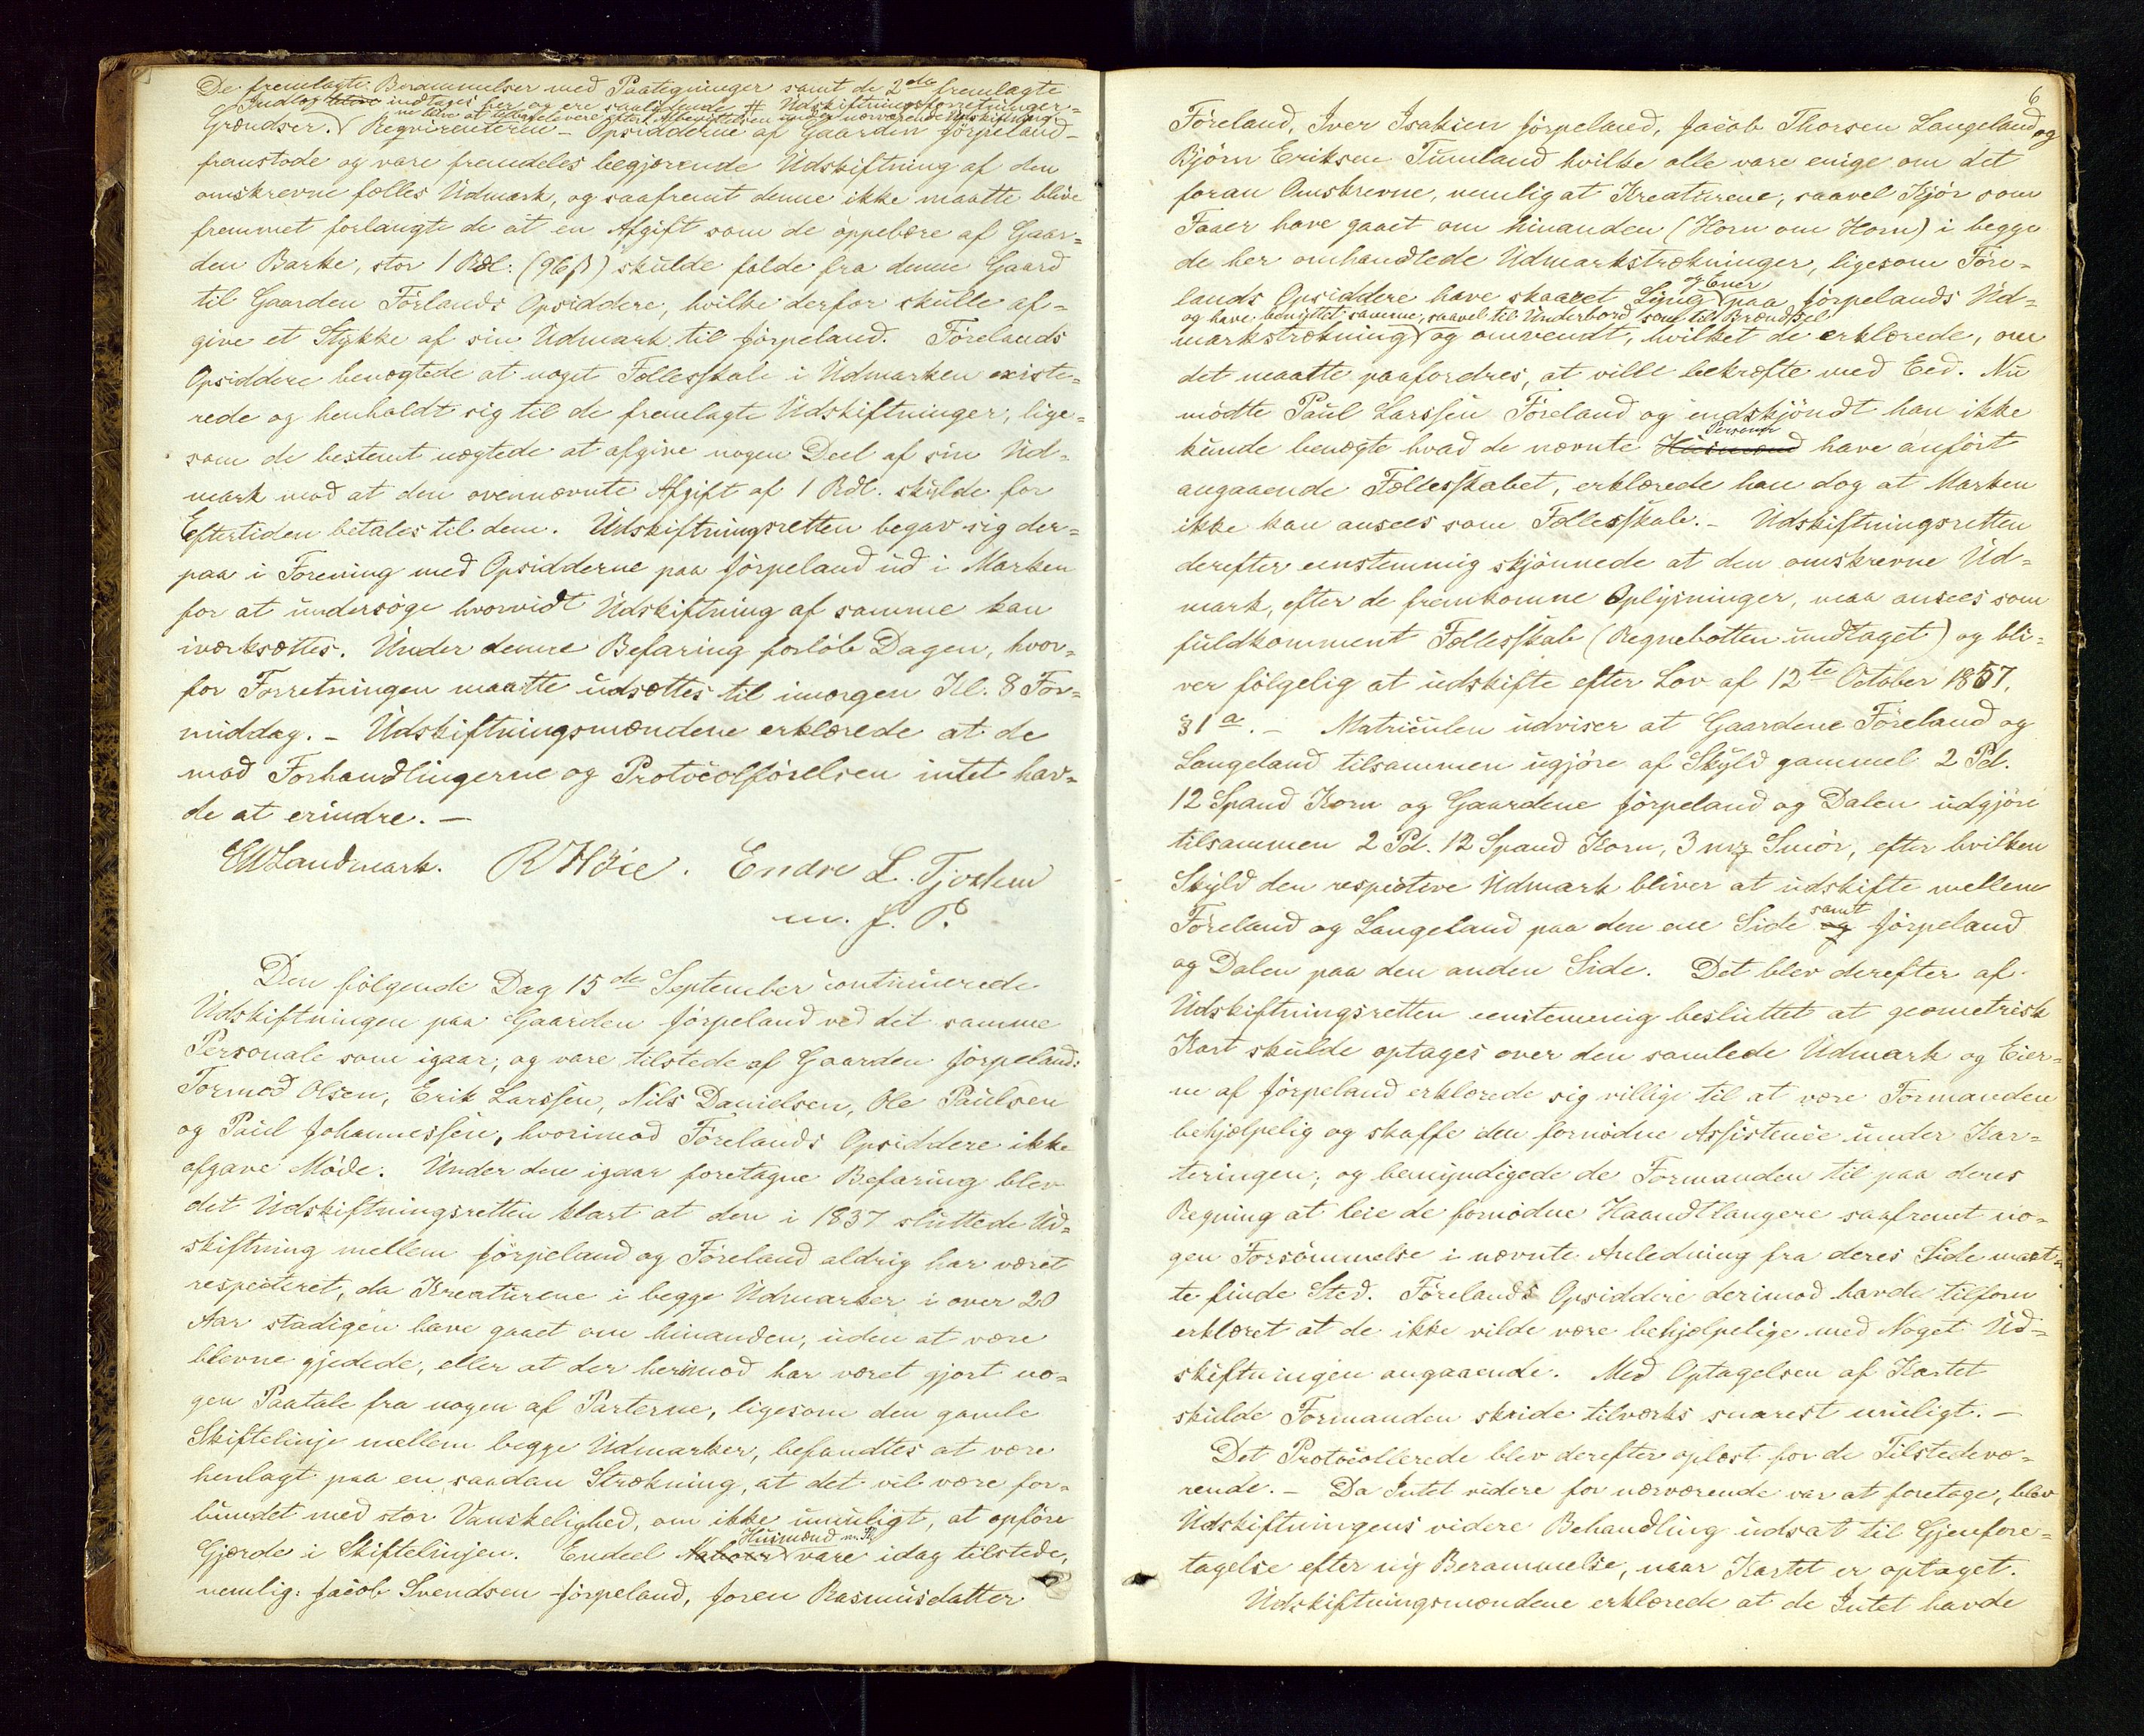 De fremlagte Berammelser med Paategninger samt de 2de fremlagte
Indlæg blive indtages her og ere saalydende # Udskiftningsforretninger=
ne blive at tilbagelevere efter Afbenyttelsen under nærværende Udskiftning.
Grændser. Requirenterne – Opsidderne af Gaarden Jörpeland –
fremstode og vare fremdeles begjærende Udskiftning af den
omskrevne fælles Udmark, og saafremt denne ikke maatte blive
fremmet forlangte de at en Afgift som de oppebære af Gaar=
den Barke, stor 1 Rdl: (96 ß) skulde falde fra denne Gaard
til Gaarden Förlands Opsiddere, hvilke derfor skulle af=
give et Stykke af sin Udmark til Jörpeland. Förelands
Opsiddere benægtede at noget Fællesskab i Udmarken existe=
rede og henholdt sig til de fremlagte Udskiftninger, lige=
som de bestemt nægtede at afgive nogen Deel af sin Ud=
mark mod at den ovennævnte Afgift af 1 Rdl. skulde for
Eftertiden betales til dem. Udskiftningsretten begav sig der=
paa i Forening med Opsidderne paa Jörpeland ud i Marken
for at undersöge hvorvidt Udskiftning af samme kan
iværksættes. Under denne Befaring forlöb Dagen, hvor=
for Forretningen maatte udsættes til imorgen Kl. 8 For=
middag. – Udskiftningsmændene erklærede at de
mod Forhandlingerne og Protocolförelsen intet hav=
de at erindre. –
EW Landmark. R Höie. Endre L. Tjostem
m. f. P.
Den fölgende Dag 15de September continuerede
Udskiftningen paa Gaarden Jörpeland ved det samme
Personale som igaar, og vare tilstede af Gaarden Jörpeland:
Tormod Olsen, Erik Larssen, Nils Danielsen, Ole Paulsen
og Paul Johannessen, hvorimod Förelands Opsiddere ikke
afgave Möde. Under den igaar foretagne Befaring blev
det Udskiftningsretten klart at den i 1837 sluttede Ud=
skiftning mellem Jörpeland og Föreland aldrig har været
respecteret, da Kreaturene i begge Udmarker i over 20
Aar stadigen have gaaet om hinanden, uden at være
blevne gjedede, eller at der herimod har været gjort no=
gen Paatale fra nogen af Parterne, ligesom den gamle
Skiftelinje mellem begge Udmarker, befandtes at være
henlagt paa en saadan Strækning, at det vil være for=
bundet med stor Vanskelighed, om ikke umuligt, at opföre
Husmænd m. Fl.
Gjærde i Skiftelinjen. Endeel Naboer vare idag tilstede,
nemlig: Jacob Svendsen Jörpeland, Joren Rasmusdatter
6
Föreland, Iver Isaksen Jörpeland, Jacob Thorsen Langeland og
Björn Eriksen Tumland hvilke alle vare enige om det
foran Omskrevne, nemlig at Kreaturene, saavel Kjör som
Faaer have gaaet om hinanden (Horn om Horn) i begge
de her omhandlede Udmarkstrækninger, ligesom Före=
og Ener
lands Opsiddere have skaaret Lyng paa Jörpelands Ud=
og have benyttet samme, saavel til Underbord som til Brændsel
markstrækning og omvendt, hvilket de erklærede, om
det maatte paafordres, at ville bekræfte med Eed. Nu
mödte Paul Larssen Föreland og endskjöndt han ikke
Personer
kunde benægte hvad de nævnte Husmænd have anfört
angaaende Fællesskabet, erklærede han dog at Marken
ikke kan ansees som Fællesskab. – Udskiftningsretten
derefter eenstemmig skjönnede at den omskrevne Ud=
mark, efter de fremkomne Oplysninger, maa ansees som
fuldkomment Fællesskab (Regnebotten undtaget) og bli=
ver fölgelig at udskifte efter Lov af 12te October 1857,
§ 1 a. – Matriculen udviser at Gaardene Föreland og
Langeland tilsammen ugjöre af Skyld gammel 2 Pd.
12 Spand Korn og Gaardene Jörpeland og Dalen udgjöre
tilsammen 2 Pd. 12 Spand Korn, 3 mrk Smör, efter hvilken
Skyld den respective Udmark bliver at udskifte mellem
samt
Föreland og Langeland paa den ene Side og Jörpeland
og Dalen paa den anden Side. Det blev derefter af
Udskiftningsretten eenstemmig besluttet at geometrisk
Kart skulde optages over den samlede Udmark og Eier=
ne af Jörpeland erklærede sig villige til at være Formanden
behjælpelig og skaffe den fornödne Assistence under Kar=
teringen; og bemyndigede de Formanden til paa deres
Regning at leie de fornödne Haandtlangere saafremt no=
gen Forsömmelse i nævnte Anledning fra deres Side maat=
te finde Sted. Förelands Opsiddere derimod havde tilforn
erklæret at de ikke vilde være behjælpelige med Noget Ud=
skiftningen angaaende. Med Optagelsen af Kartet
skulde Formanden skride tilværks snarest muligt. –
Det Protocollerede blev derefter oplæst for de Tilstedevæ=
rende. – Da Intet videre for nærværende var at foretage, blev
Udskiftningens videre Behandling udsat til Gjenfore=
tagelse efter ny Berammelse, naar Kartet er optaget.
Udskiftningsmændene erklærede at de Intet havde